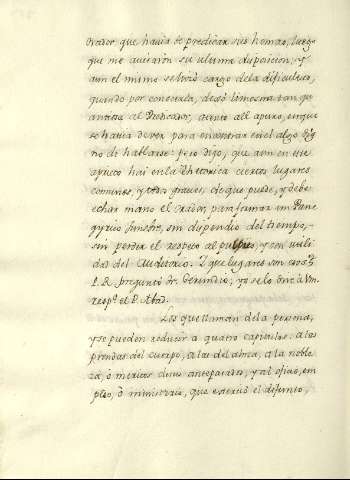 Orador que havia de predicar sus honras, luego
que me avisaron su ultima disposicion, y
aun el mismo se hizo cargo dela dificultad,
quando por conocerla, dexò limosna tan qu
antiosa al Predicador, atento al apuro, en que
se havia de ver para encontrar en el algo dig
no de hablarse: pero digo, que aun en este
apuro hai en la Rhetorica ciertos lugares
comunes, y todos graves, de que puede, y debe
echar mano el orador, para formar un Pane
gyrico funebre, sin dispendio del tiempo,
sin perder el respeto al pulpito, y con utili
dad del Auditorio. I que lugares son esos
P. R. preguntò fr. Gerundio, yo selo dirè à Vm.
resp.º el P. Abad.
Los que llaman dela persona,
y se pueden reducir a quatro capitulos: a las
prendas del cuerpo, a las del alma, a la noble
za, ò meritos desus antepasados, y al oficio, em
pleo, ò ministerio, que exerciò el difunto,